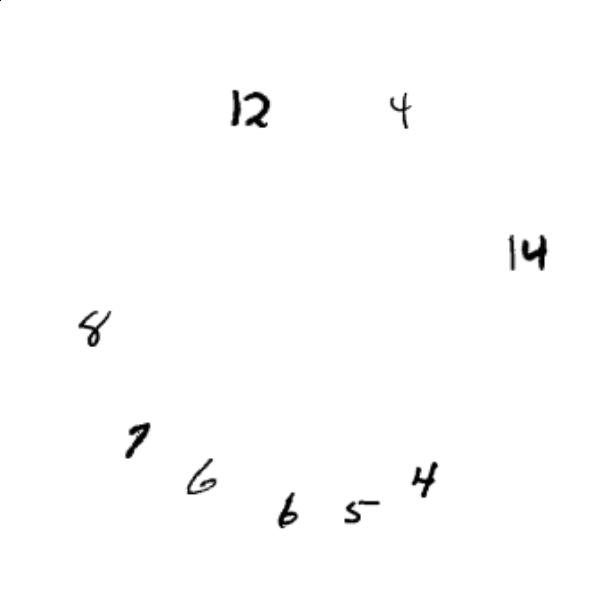 12 4
14
8
7
6
6 5 4